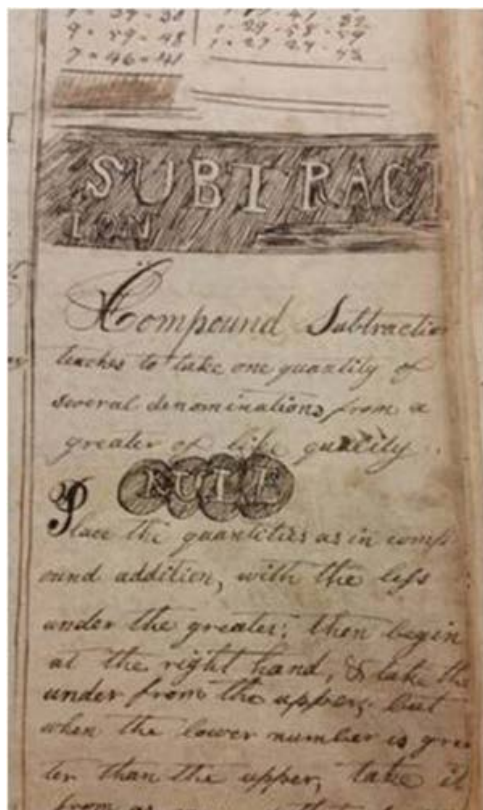 9 = 59 = 48
7 = 46 = 41
SUBTRACT
ION
Compound Subtraction
teaches to take one quantity of
several denominations from a
greater of like quality.
RULE
Place the quantities as in comp
ound addition, with the less
under the greater; then begin
at the right hand, & take the
under from the upper; but
when the lower number is grea
ter than the upper, take it
from as